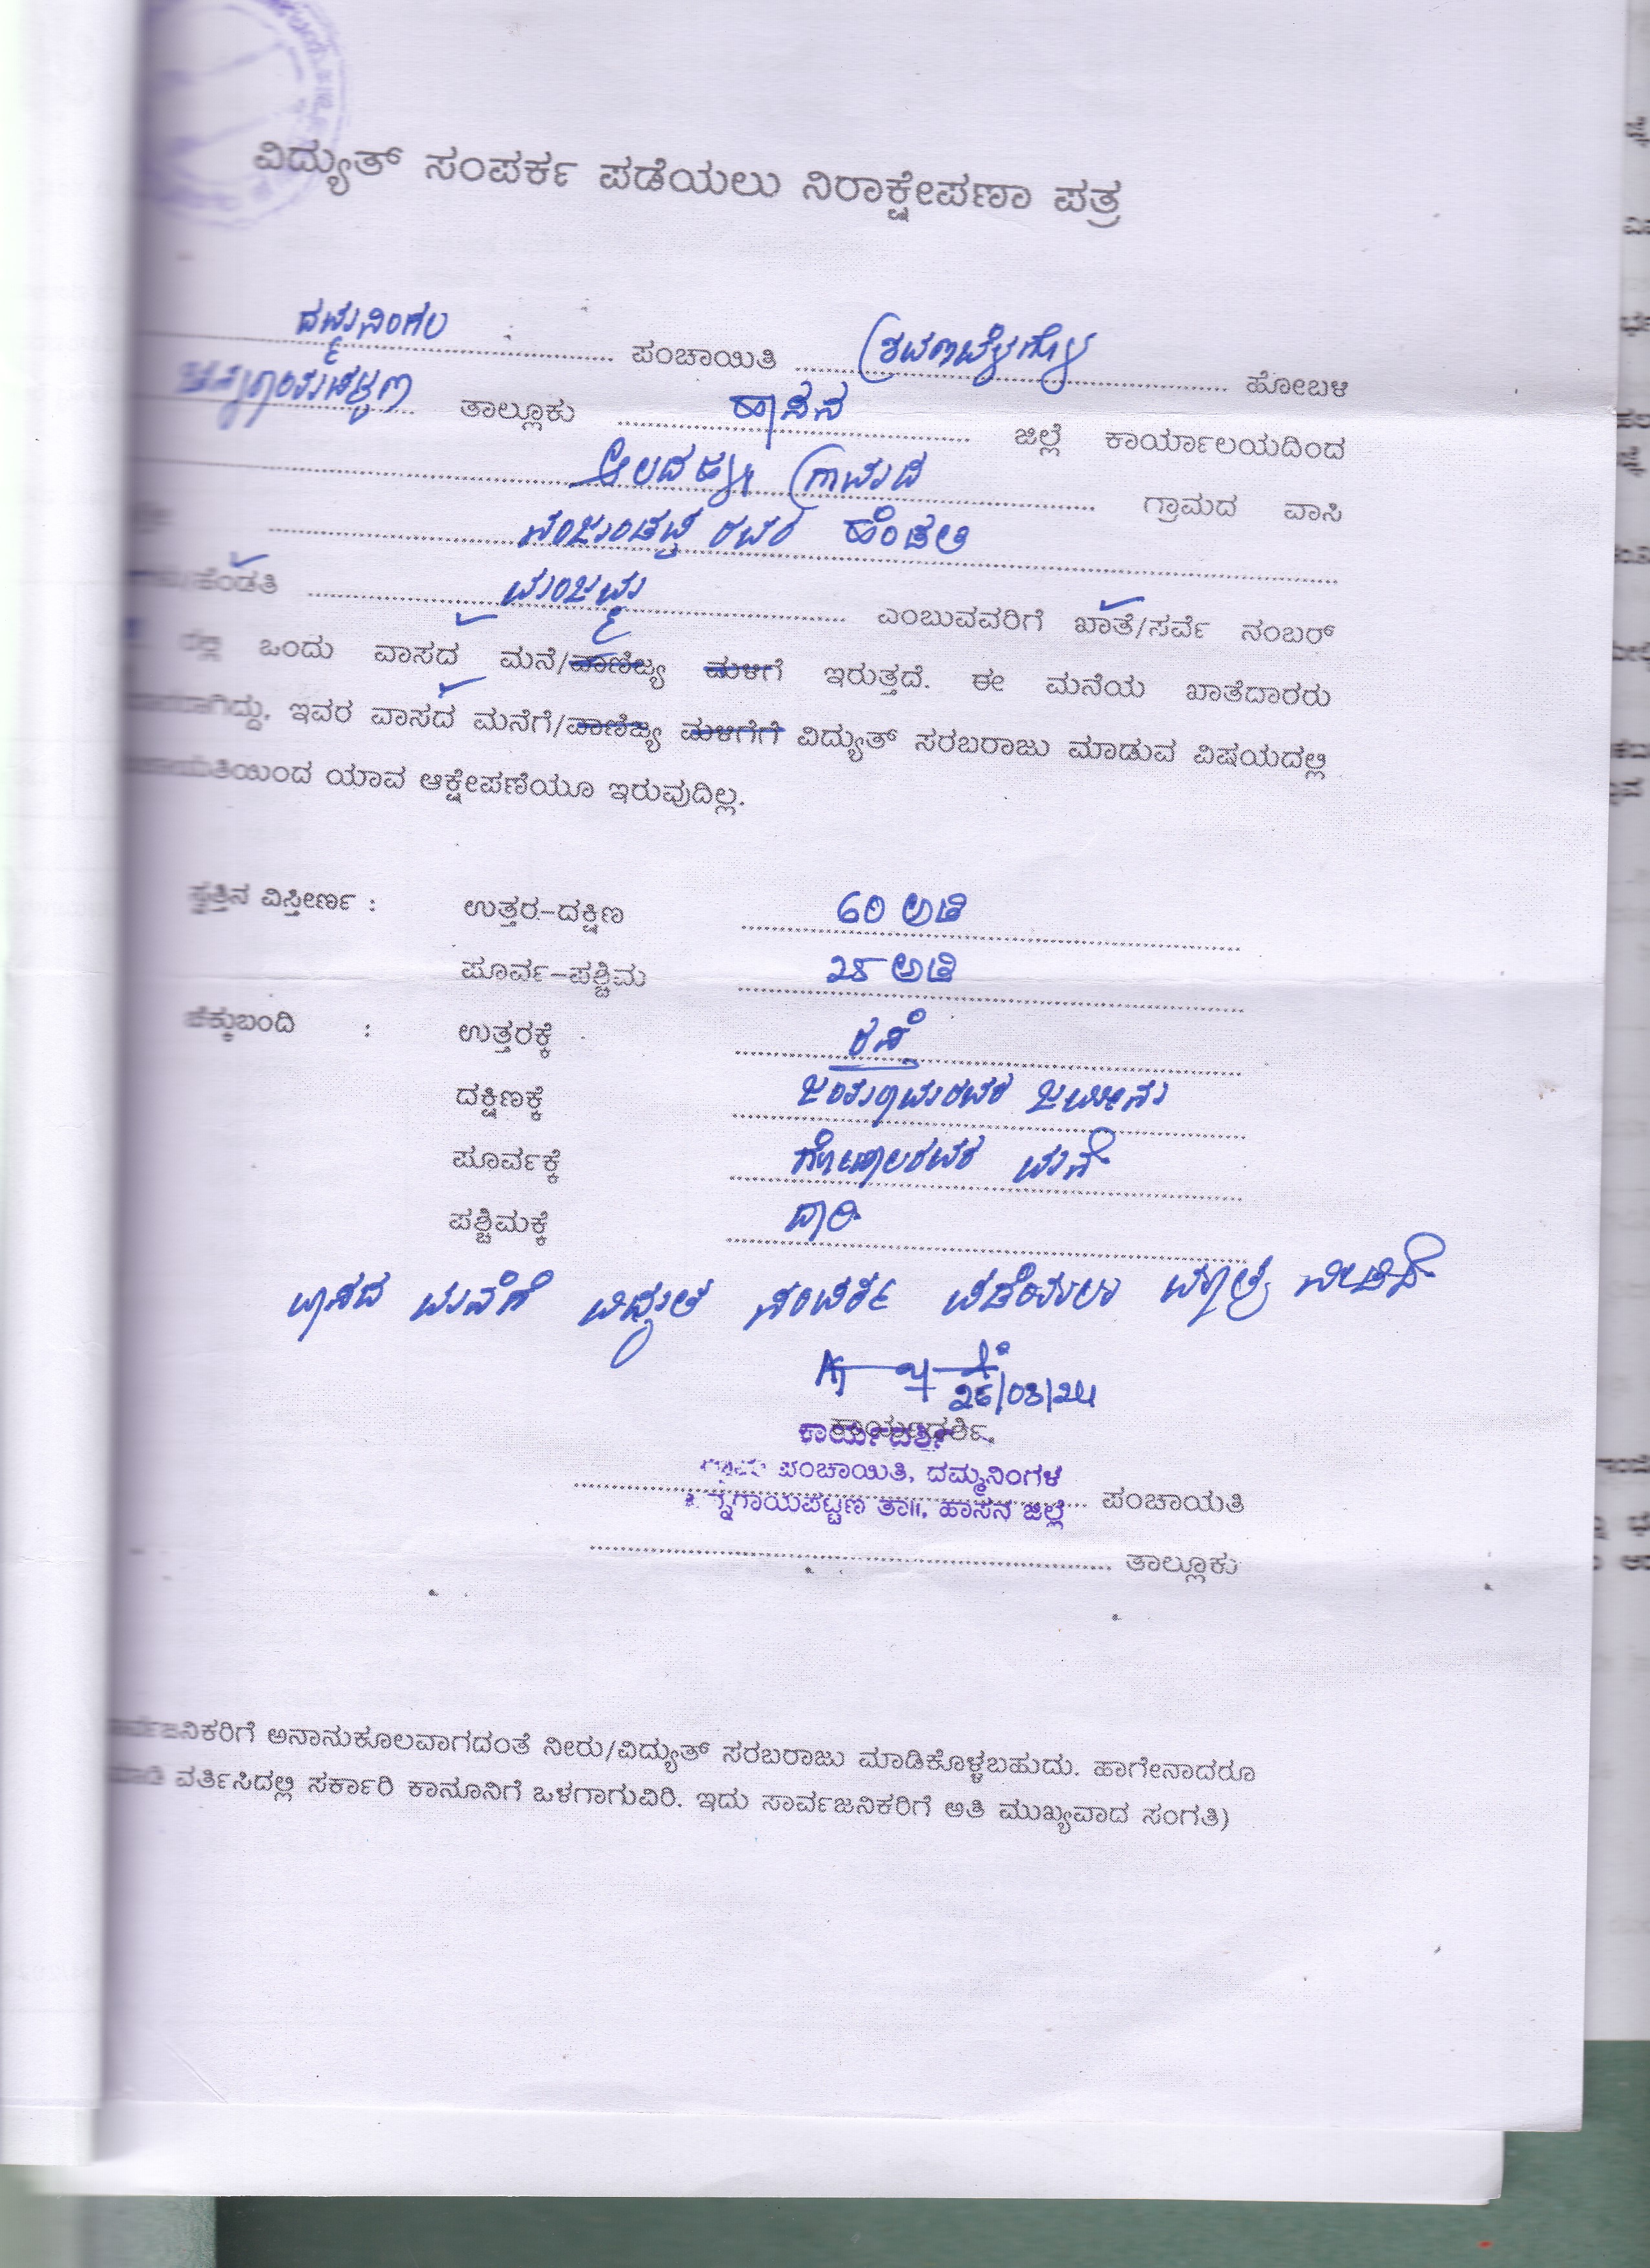 ವಿದ್ಯುತ್ ಸಂಪರ್ಕ ಪಡೆಯಲು ನಿರಾಕ್ಷೇಪಣಾ ಪತ್ರ
ದಮ್ಮನಿಂಗಲ ಪಂಚಾಯಿತಿ ಶ್ರವಣಬೆಳಗೊಳ ಹೋಬಳಿ
ಚನ್ನರಾಯಪಟ್ಟಣ ತಾಲ್ಲೂಕು ಹಾಸನ ಜಿಲ್ಲೆ ಕಾರ್ಯಾಲಯದಿಂದ
ಆಲದಹಳ್ಳಿ ಗ್ರಾಮದ ಗ್ರಾಮದ ವಾಸಿ
ನಂಜುಂಡಪ್ಪ ರವರ ಹೆಂಡತಿ
ಹೆಂಡತಿ ಮಂಜಮ್ಮ ಎಂಬುವವರಿಗೆ ಖಾತೆ/ಸರ್ವೆ ನಂಬರ್
ರಲ್ಲಿ ಒಂದು ವಾಸದ ಮನೆ/ವಾಣಿಜ್ಯ ಮಳಿಗೆ ಇರುತ್ತದೆ. ಈ ಮನೆಯ ಖಾತೆದಾರರು
ಇವರ ವಾಸದ ಮನೆಗೆ/ವಾಣಿಜ್ಯ ಮಳಿಗೆಗೆ ವಿದ್ಯುತ್ ಸರಬರಾಜು ಮಾಡುವ ವಿಷಯದಲ್ಲಿ
ಯಾವ ಆಕ್ಷೇಪಣೆಯೂ ಇರುವುದಿಲ್ಲ.
ಸ್ವತ್ತಿನ ವಿಸ್ತೀರ್ಣ : ಉತ್ತರ-ದಕ್ಷಿಣ 60 ಅಡಿ
ಪೂರ್ವ-ಪಶ್ಚಿಮ 25 ಅಡಿ
ಚೆಕ್ಕುಬಂದಿ : ಉತ್ತರಕ್ಕೆ ರಸ್ತೆ
ದಕ್ಷಿಣಕ್ಕೆ ಜಯರಾಮರವರ ಜಮೀನು
ಪೂರ್ವಕ್ಕೆ ಗೋಪಾಲರವರ ಮನೆ
ಪಶ್ಚಿಮಕ್ಕೆ ದಾರಿ
ವಾಸದ ಮನೆಗೆ ವಿದ್ಯುತ ಸಂಪರ್ಕ ಪಡೆಯಲು ಮಾತ್ರ ನೀಡಿದೆ
26/03/24
ಕಾರ್ಯದರ್ಶಿ,
ಕಾರ್ಯದರ್ಶಿ
ಗ್ರಾಮ ಪಂಚಾಯಿತಿ, ದಮ್ಮನಿಂಗಳ
ಪಂಚಾಯತಿ
ನ್ನರಾಯಪಟ್ಟಣ ತಾ||, ಹಾಸನ ಜಿಲ್ಲೆ
ತಾಲ್ಲೂಕು
ಸಾರ್ವಜನಿಕರಿಗೆ ಅನಾನುಕೂಲವಾಗದಂತೆ ನೀರು/ವಿದ್ಯುತ್ ಸರಬರಾಜು ಮಾಡಿಕೊಳ್ಳಬಹುದು. ಹಾಗೇನಾದರೂ
ಮಾಡಿ ವರ್ತಿಸಿದಲ್ಲಿ ಸರ್ಕಾರಿ ಕಾನೂನಿಗೆ ಒಳಗಾಗುವಿರಿ. ಇದು ಸಾರ್ವಜನಿಕರಿಗೆ ಅತಿ ಮುಖ್ಯವಾದ ಸಂಗತಿ)